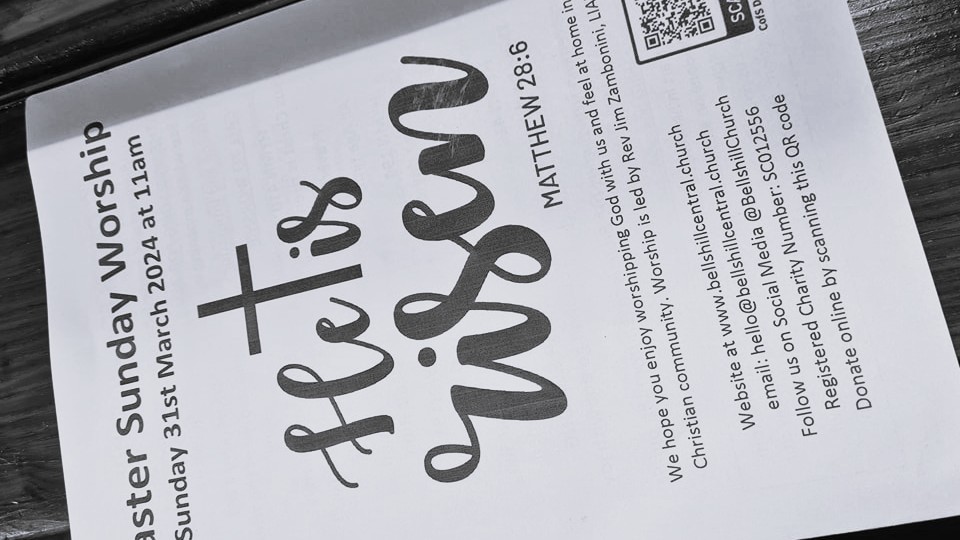 aster Sunday Worship
Sunday 31st March 2024 at 11am
He is
risen
MATTHEW 28:6
We hope you enjoy worshipping God with us and feel at home in
Christian community. Worship is led by Rev Jim Zambonini, LIA
Website at www.bellshillcentral.church
email: hello@bellshillcentral.church
Follow us on Social Media @BellshillChurch
Registered Charity Number: SC012556
Donate online by scanning this QR code